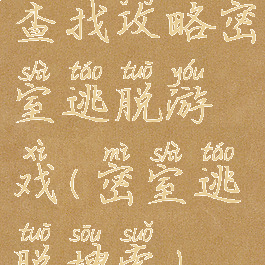 查找攻略密
shì táo tuō yóu
室逃脱游
xì mì shì táo
戏(密室逃
tuō sōu suǒ
脱搜索)